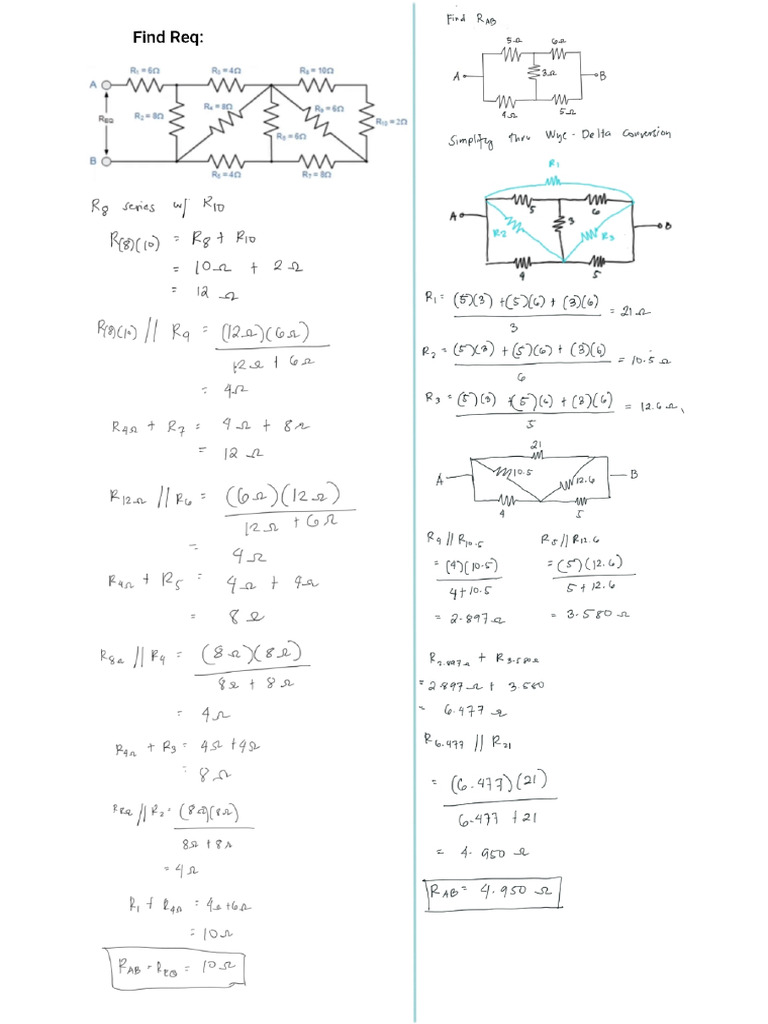 Find Req:
R₁ = 6Ω R₃ = 4Ω R₈ = 10Ω
A
R₂ = 8Ω R₄ = 8Ω R₉ = 6Ω
R₁₀ = 2Ω
R₆ = 6Ω
B
R₅ = 4Ω R₇ = 8Ω
R8 series w/ R10
R(8)(10) = R8 + R10
= 10Ω + 2Ω
= 12Ω
R(8)(10) // R9 = (12Ω)(6Ω)
12Ω + 6Ω
= 4Ω
R4Ω + R7 = 4Ω + 8Ω
= 12Ω
R12Ω // R6 = (6Ω)(12Ω)
12Ω + 6Ω
= 4Ω
R4Ω + R5 = 4Ω + 4Ω
= 8Ω
R8Ω // R4 = (8Ω)(8Ω)
8Ω + 8Ω
= 4Ω
R4Ω + R3 = 4Ω + 4Ω
= 8Ω
R8Ω // R2 = (8Ω)(8Ω)
8Ω + 8Ω
= 4Ω
R1 + R4Ω = 4Ω + 6Ω
= 10Ω
RAB = REQ = 10Ω
Find RAB
5Ω 6Ω
A 3Ω B
4Ω 5Ω
Simplify thru Wye - Delta Conversion
R1
5 6
A 3 B
R2 R3
4 5
R1 = (5)(3) + (5)(6) + (3)(6) = 21Ω
3
R2 = (5)(3) + (5)(6) + (3)(6) = 10.5Ω
6
R3 = (5)(3) + (5)(6) + (3)(6) = 12.6Ω
5
21
A 10.5 12.6 B
4 5
R4 // R10.5 R5 // R12.6
= (4)(10.5) = (5)(12.6)
4 + 10.5 5 + 12.6
= 2.897Ω = 3.580Ω
R2.897Ω + R3.580Ω
= 2.897Ω + 3.580
= 6.477Ω
R6.477 // R21
= (6.477)(21)
6.477 + 21
= 4.950Ω
RAB = 4.950Ω